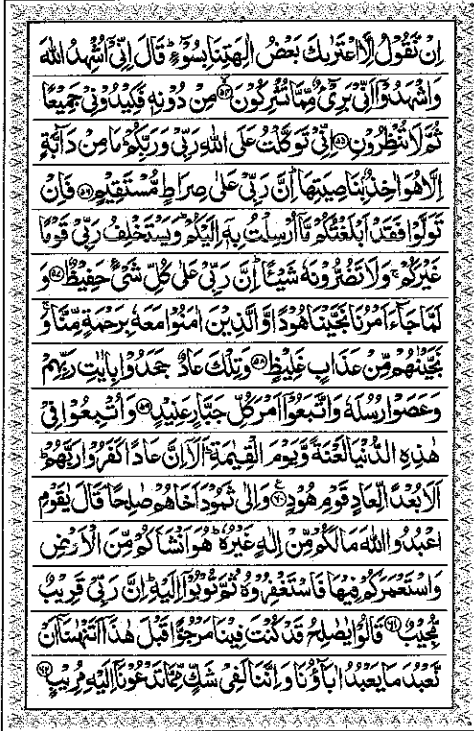 اِنْ نَّقُوْلُ اِلَّا اعْتَرٰىكَ بَعْضُ اٰلِهَتِنَا بِسُوْٓءٍ ؕ قَالَ اِنِّیْۤ اُشْهِدُ اللّٰهَ
وَاشْهَدُوْۤا اَنِّیْ بَرِیْٓءٌ مِّمَّا تُشْرِكُوْنَ ۙ﴿۵۴﴾ مِنْ دُوْنِهٖ فَكِیْدُوْنِیْ جَمِیْعًا
ثُمَّ لَا تُنْظِرُوْنِ ﴿۵۵﴾ اِنِّیْ تَوَكَّلْتُ عَلَی اللّٰهِ رَبِّیْ وَرَبِّكُمْ ؕ مَا مِنْ دَآبَّةٍ
اِلَّا هُوَ اٰخِذٌۢ بِنَاصِیَتِهَا ؕ اِنَّ رَبِّیْ عَلٰی صِرَاطٍ مُّسْتَقِیْمٍ ﴿۵۶﴾ فَاِنْ
تَوَلَّوْا فَقَدْ اَبْلَغْتُكُمْ مَّاۤ اُرْسِلْتُ بِهٖۤ اِلَیْكُمْ ؕ وَیَسْتَخْلِفُ رَبِّیْ قَوْمًا
غَیْرَكُمْ ۚ وَلَا تَضُرُّوْنَهٗ شَیْئًا ؕ اِنَّ رَبِّیْ عَلٰی كُلِّ شَیْءٍ حَفِیْظٌ ﴿۵۷﴾ وَ
لَمَّا جَآءَ اَمْرُنَا نَجَّیْنَا هُوْدًا وَّالَّذِیْنَ اٰمَنُوْا مَعَهٗ بِرَحْمَةٍ مِّنَّا ۚ وَ
نَجَّیْنٰهُمْ مِّنْ عَذَابٍ غَلِیْظٍ ﴿۵۸﴾ وَتِلْكَ عَادٌ ۙ جَحَدُوْا بِاٰیٰتِ رَبِّهِمْ
وَعَصَوْا رُسُلَهٗ وَاتَّبَعُوْۤا اَمْرَ كُلِّ جَبَّارٍ عَنِیْدٍ ﴿۵۹﴾ وَاُتْبِعُوْا فِیْ
هٰذِهِ الدُّنْیَا لَعْنَةً وَّیَوْمَ الْقِیٰمَةِ ؕ اَلَاۤ اِنَّ عَادًا كَفَرُوْا رَبَّهُمْ ؕ
اَلَا بُعْدًا لِّعَادٍ قَوْمِ هُوْدٍ ﴿۶۰﴾ وَاِلٰی ثَمُوْدَ اَخَاهُمْ صٰلِحًا ۘ قَالَ یٰقَوْمِ
اعْبُدُوا اللّٰهَ مَا لَكُمْ مِّنْ اِلٰهٍ غَیْرُهٗ ؕ هُوَ اَنْشَاَكُمْ مِّنَ الْاَرْضِ
وَاسْتَعْمَرَكُمْ فِیْهَا فَاسْتَغْفِرُوْهُ ثُمَّ تُوْبُوْۤا اِلَیْهِ ؕ اِنَّ رَبِّیْ قَرِیْبٌ
مُّجِیْبٌ ﴿۶۱﴾ قَالُوْا یٰصٰلِحُ قَدْ كُنْتَ فِیْنَا مَرْجُوًّا قَبْلَ هٰذَاۤ اَتَنْهٰىنَاۤ اَنْ
نَّعْبُدَ مَا یَعْبُدُ اٰبَآؤُنَا وَاِنَّنَا لَفِیْ شَكٍّ مِّمَّا تَدْعُوْنَاۤ اِلَیْهِ مُرِیْبٍ ﴿۶۲﴾